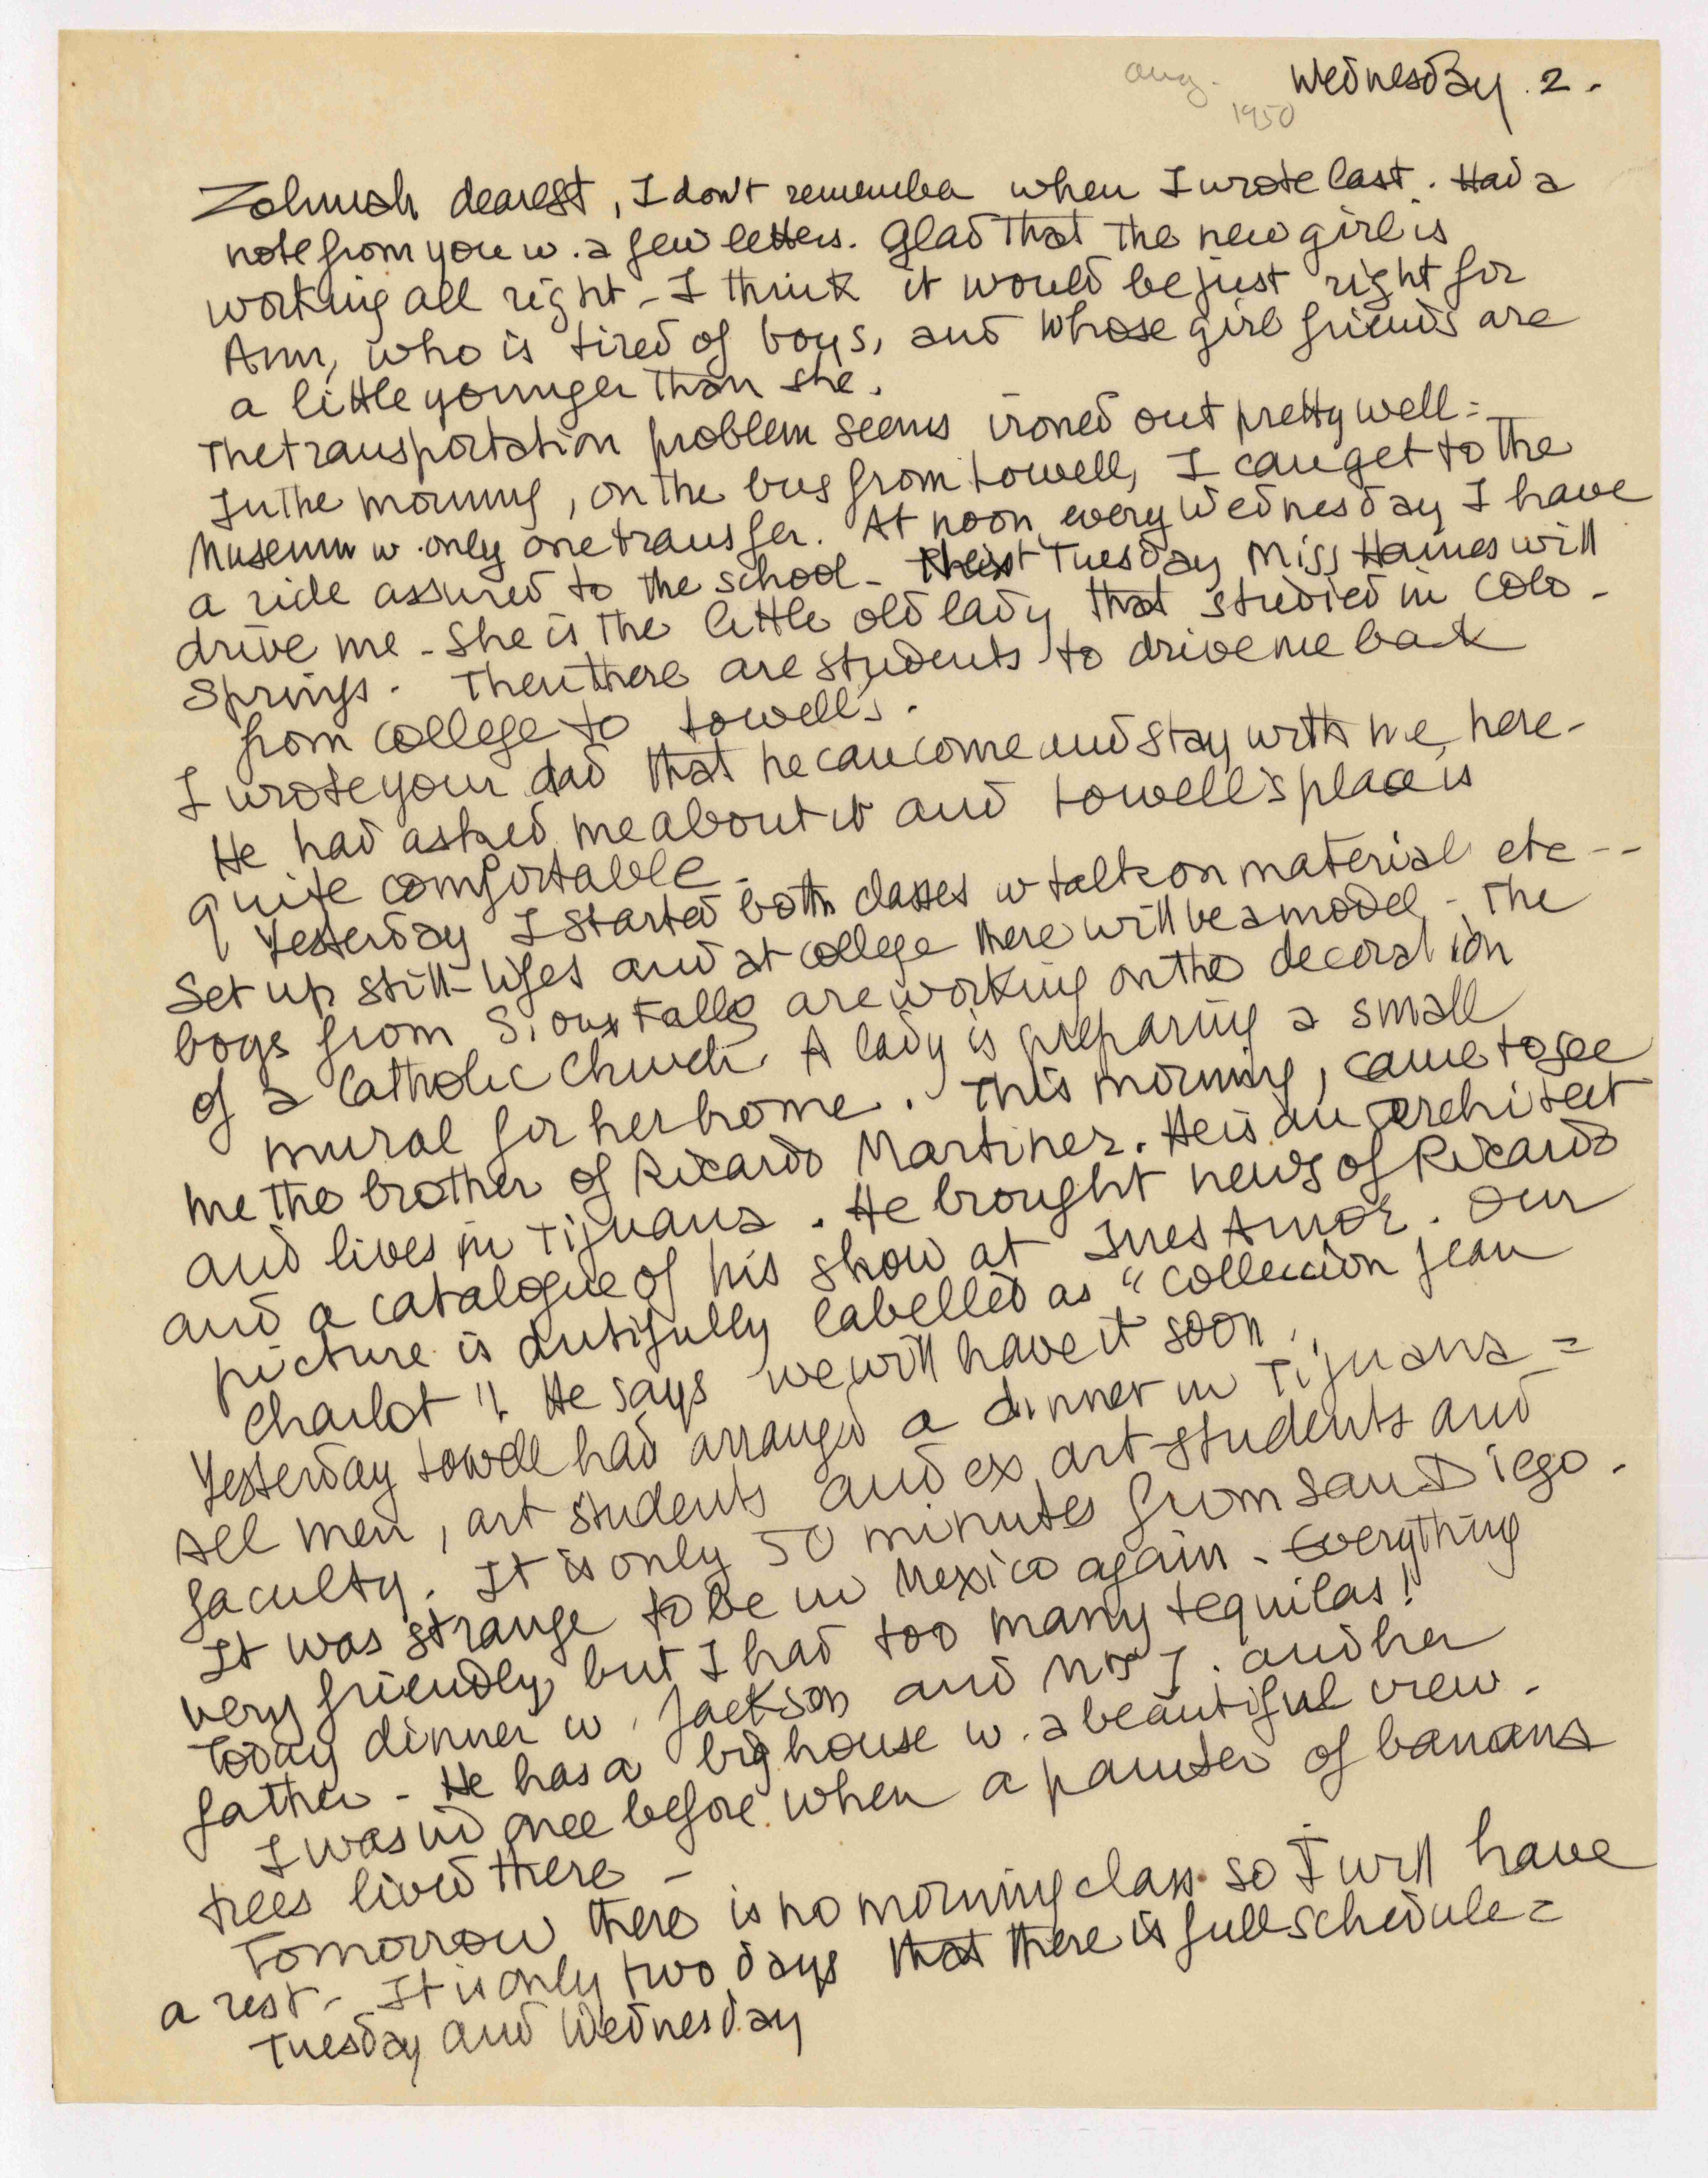 aug. Wednesday 2.
1950
Zohmah dearest, I don't remember when I wrote last. Had a
note from you w. a few letters. Glad that the new girl is
working all right - I think it would be just right for
Ann, who is tired of boys, and whose girl friends are
a little younger than she.
The transportation problem seems ironed out pretty well =
In the morning, on the bus from Lowell, I can get to the
Museum w. only one transfer. At noon every Wednesday I have
a ride assured to the school - Tuesday Miss Haines will
drive me - She is the little old lady that studied in Colo-
Springs. Then there are students to drive me back
from College to Lowell's.
I wrote your dad that he can come and stay with me here -
He had asked me about it and Lowell's place is
quite comfortable.
Yesterday I started both classes w talk on material etc --
Set up still-lifes and at college there will be a model - The
boys from Sioux Falls are working on the decoration
of a Catholic Church. A lady is preparing a small
mural for her home. This morning, came to see
me the brother of Ricardo Martinez. He is an architect
and lives in Tijuana. He brought news of Ricardo
and a catalogue of his show at Ines Amor. Our
picture is dutifully labelled as "Colleccion Jean
Charlot"! He says we will have it soon.
Yesterday Lowell had arranged a dinner in Tijuana =
All men, art students and ex art-students and
faculty. It is only 50 minutes from San Diego.
It was strange to be in Mexico again. Everything
very friendly, but I had too many tequilas!
Today dinner w. Jackson and Mrs J. and her
father - He has a big house w. a beautiful view.
I was in once before when a painter of banana
trees lived there -
Tomorrow there is no morning class so I will have
a rest - It is only two days that there is full schedule =
Tuesday and Wednesday